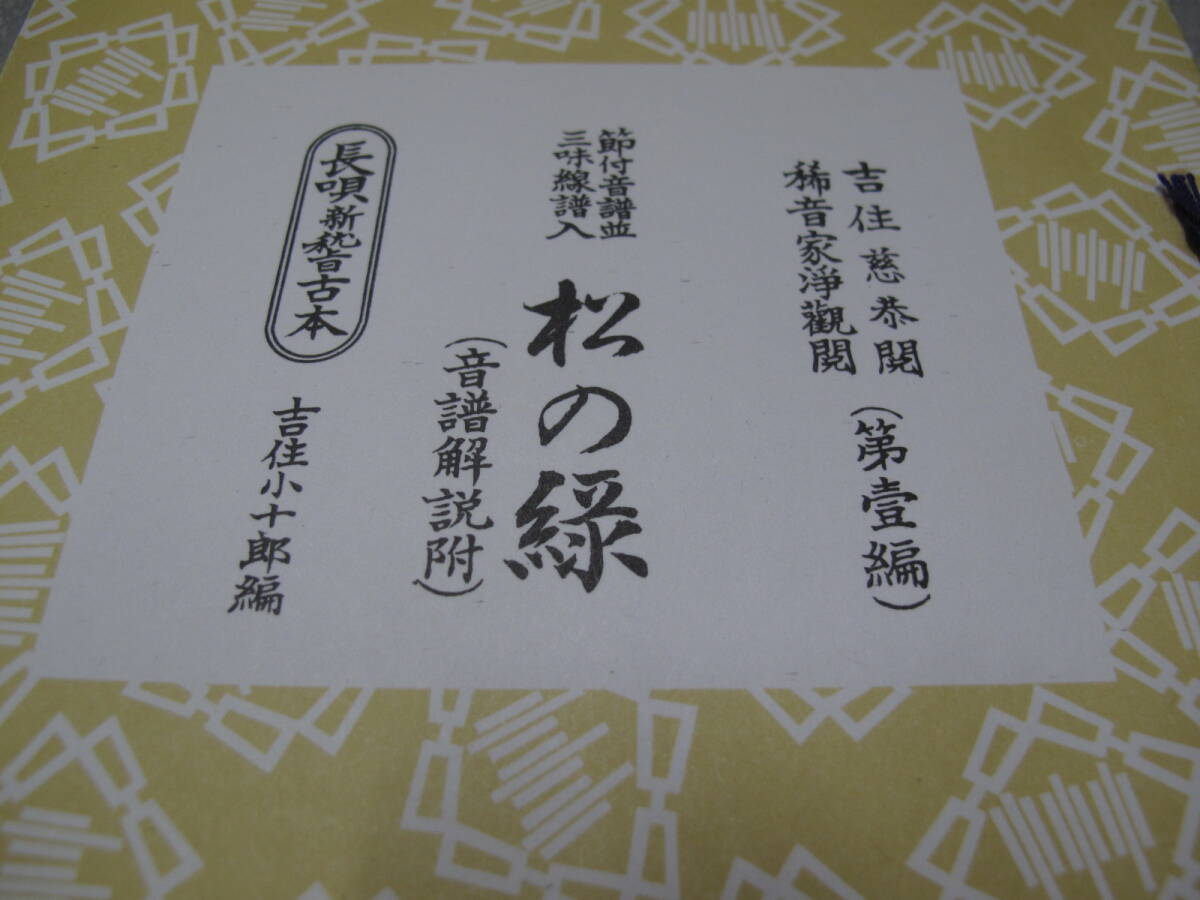 吉住慈恭閲
稀音家淨觀閲
(第壹編)
節付音譜並
三味線譜入
松の緑
(音譜解説附)
長唄新稽古本
吉住小十郎編